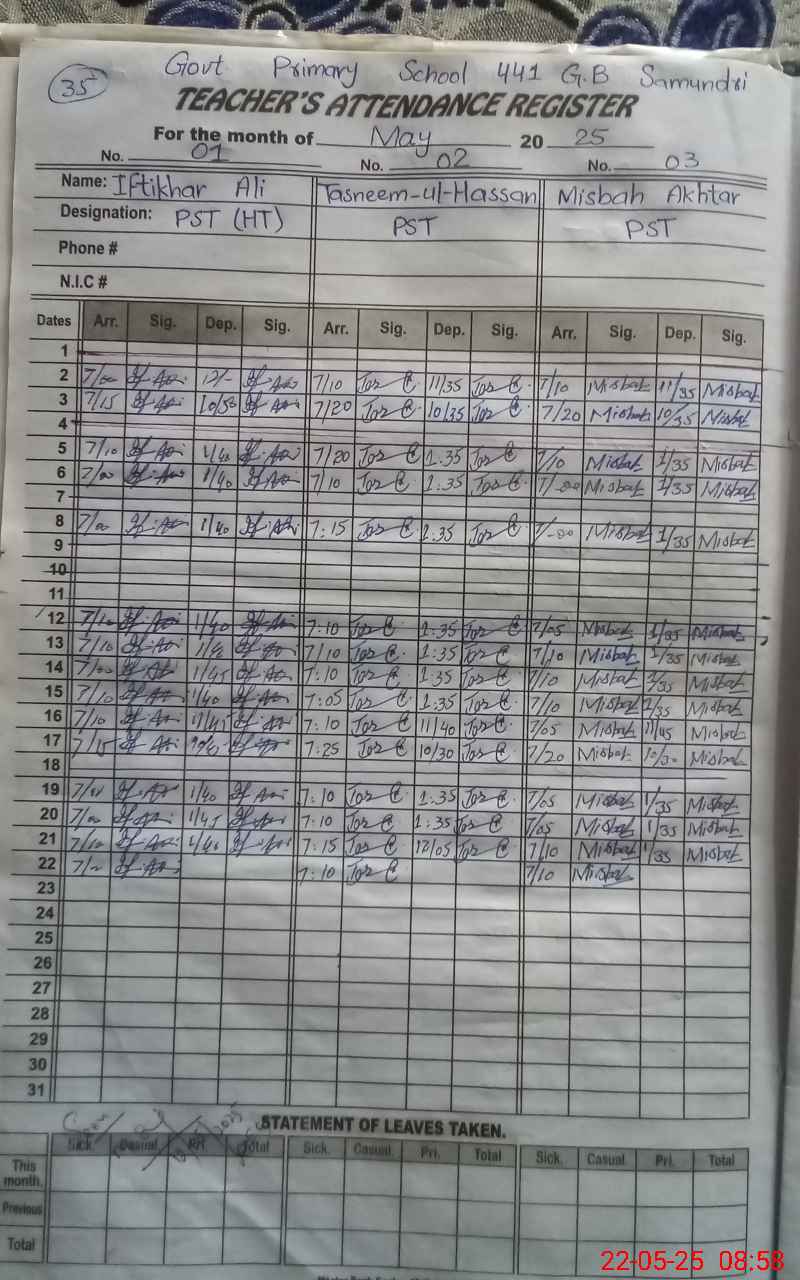 35
Govt Primary School 441 G.B Samundri
TEACHER'S ATTENDANCE REGISTER
For the month of May 20 25
No. 01 No. 02 No. 03
Name: Iftikhar Ali Tasneem-ul-Hassan Misbah Akhtar
Designation: PST (HT) PST PST
Phone #
N.I.C #
Dates Arr. Sig. Dep. Sig. Arr. Sig. Dep. Sig. Arr. Sig. Dep. Sig.
1
2 7/00 12/- 7/10 11/35 7/10 Misbah 11/35 Misbah
3 7/15 10/50 7/20 10/35 7/20 Misbah 10/35 Misbah
4
5 7/10 1/40 7/20 1:35 7/10 Misbah 1/35 Misbah
6 7/00 1/40 7/10 1:35 7/-00 Misbah 1/35 Misbah
7
8 7/00 1/40 7:15 1:35 7/-00 Misbah 1/35 Misbah
9
10
11
12 7/10 1/40 7:10 1:35 7/05 Misbah 1/35 Misbah
13 7/10 1/40 7/10 1:35 7/10 Misbah 1/35 Misbah
14 7/00 1/45 7:10 1:35 7/10 Misbah 1/35 Misbah
15 7/10 1/40 7:05 1:35 7/10 Misbah 1/35 Misbah
16 7/10 11/45 7:10 11/40 7/05 Misbah 11/45 Misbah
17 7/15 7:25 10/30 7/20 Misbah 10/30 Misbah
18
19 1/40 7:10 1:35 7/05 Misbah 1/35 Misbah
20 7/00 1/45 7:10 1:35 7/05 Misbah 1/35 Misbah
21 7/10 1/40 7:15 12/05 7/10 Misbah 1/35 Misbah
22 7:10 7/10 Misbah
23
24
25
26
27
28
29
30
31
STATEMENT OF LEAVES TAKEN.
Sick. Casual. Pri. Total Sick. Casual. Pri. Total Sick. Casual. Pri. Total
This month.
Previous
Total
22-05-25 08:58